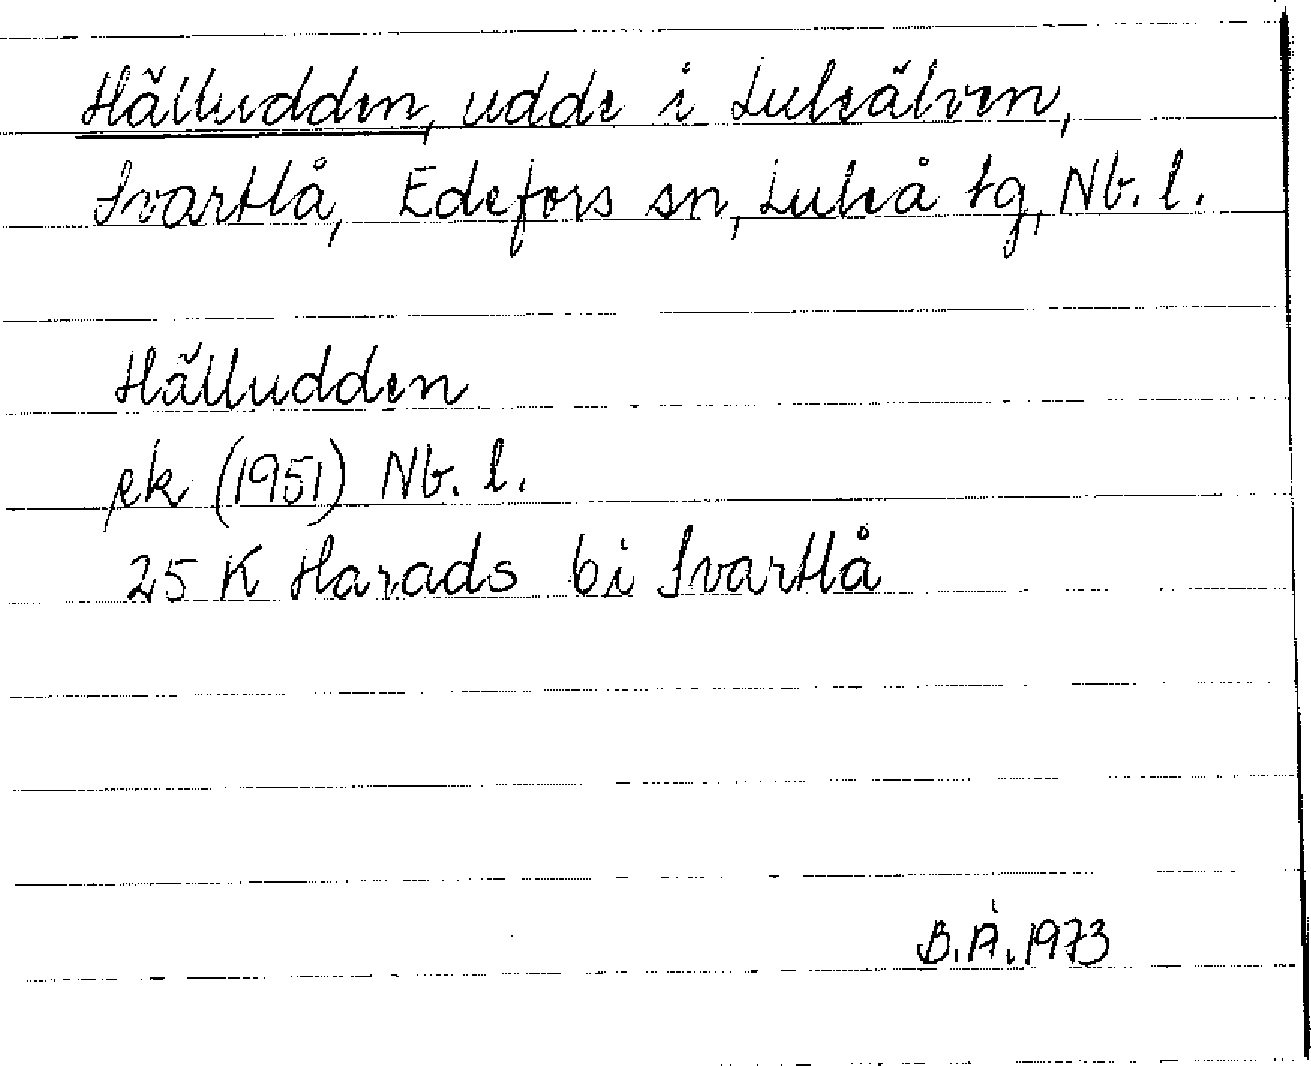 Hälludden, udde i Luleälven,
Svartlå, Edefors sn, Luleå tg, Nb. l.
Hälludden
ek (1951) Nb. l.
25 K Harads bi Svartlå
B.Å. 1973